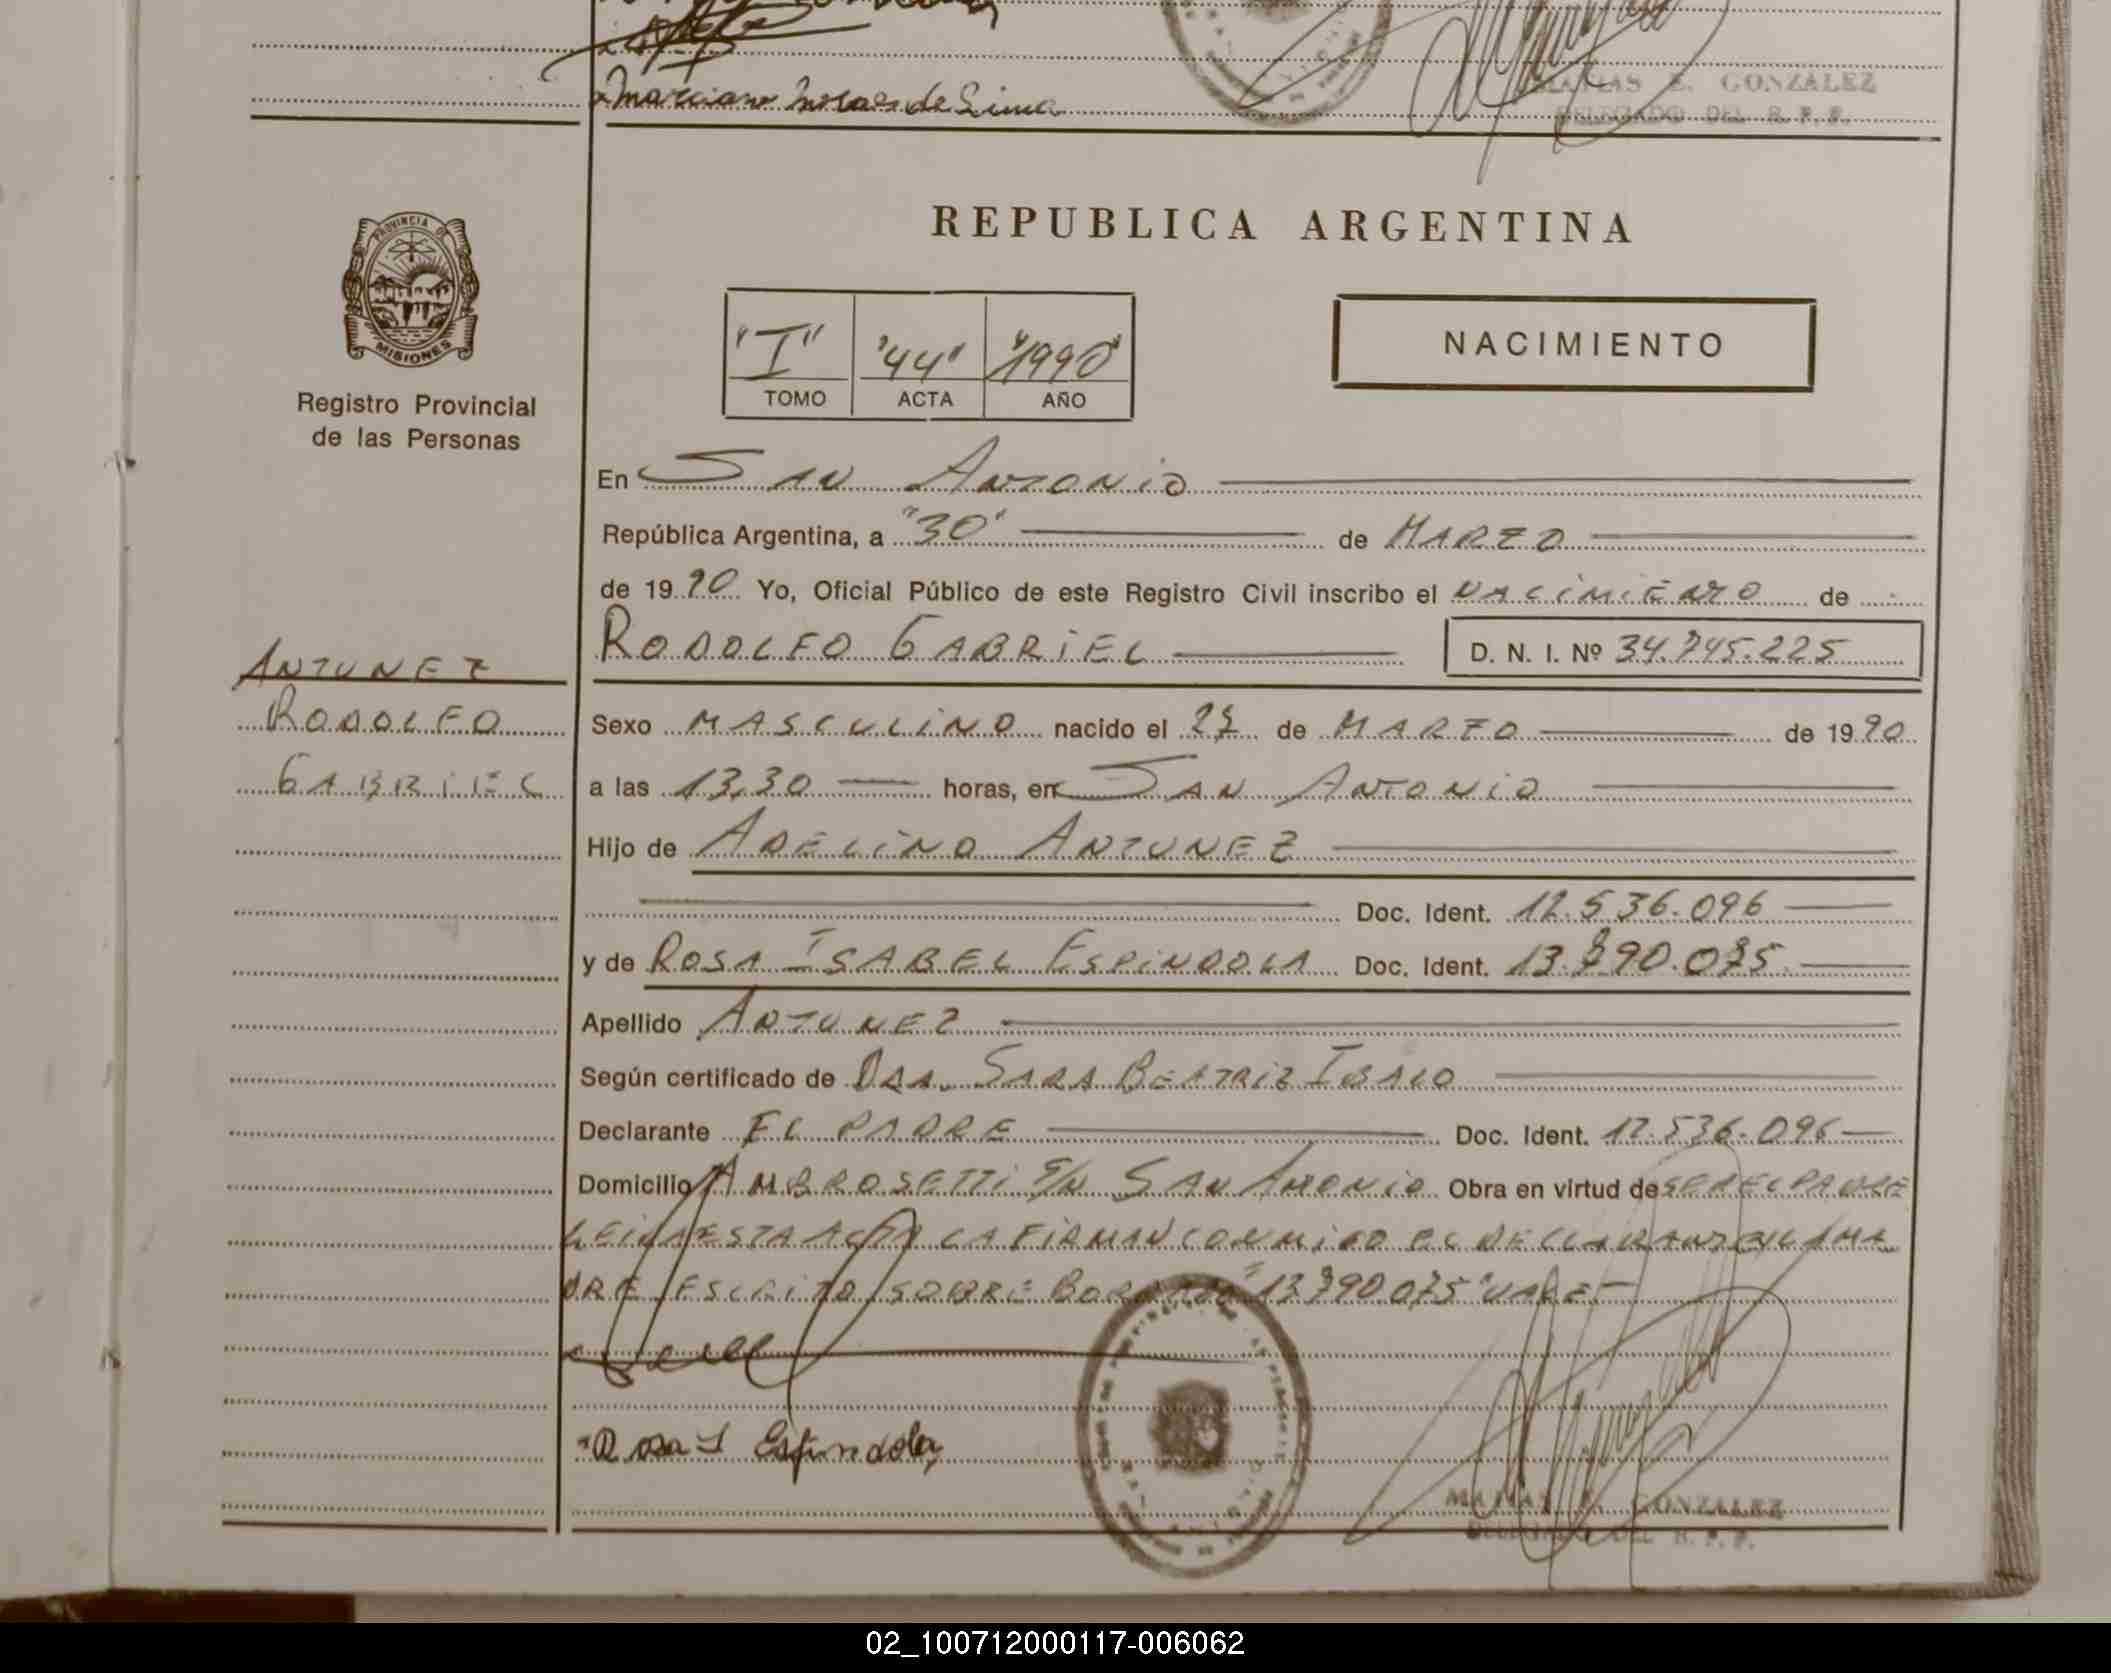 Marciano Moraes de Lima
MATIAS E. GONZALEZ
DELEGADO DEL R. P. P.
PROVINCIA DE
MISIONES
Registro Provincial
de las Personas
REPUBLICA ARGENTINA
"I" "44" "1990"
TOMO ACTA AÑO
NACIMIENTO
En SAN ANTONIO
República Argentina, a "30" de MARZO
de 1990 Yo, Oficial Público de este Registro Civil inscribo el NACIMIENTO de
RODOLFO GABRIEL D. N. I. Nº 34.745.225
ANTUNEZ
RODOLFO
GABRIEL
Sexo MASCULINO nacido el 27 de MARZO de 1990
a las 13,30 horas, en SAN ANTONIO
Hijo de ADELINO ANTUNEZ
Doc. Ident. 12.536.096
y de ROSA ISABEL ESPINDOLA Doc. Ident. 13.790.075
Apellido ANTUNEZ
Según certificado de DRA. SARA BEATRIZ IBALO
Declarante EL PADRE Doc. Ident. 12.536.096
Domicilio AMBROSETTI S/N SAN ANTONIO Obra en virtud de SER EL PADRE
LEIDA ESTA ACTA LA FIRMAN CONMIGO EL DECLARANTE Y LA MA
DRE ESCRITO SOBRE BORRADO "13790.075" VALE
Rosa I Espindola
MATIAS E. GONZALEZ
DELEGADO DEL R. P. P.
02_100712000117-006062